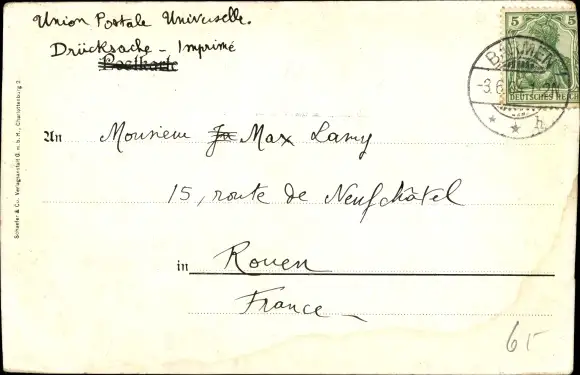 Union Postale Universelle.
Drücksache – Imprimé
Postkarte
5 5
DEUTSCHES REICH
BARMEN
-3.6.
h
An Monsieur Max Lamy
15, route de Neufchâtel
in Rouen
France
65
Schaefer & Co., Verlagsanstalt G. m. b. H., Charlottenburg 2